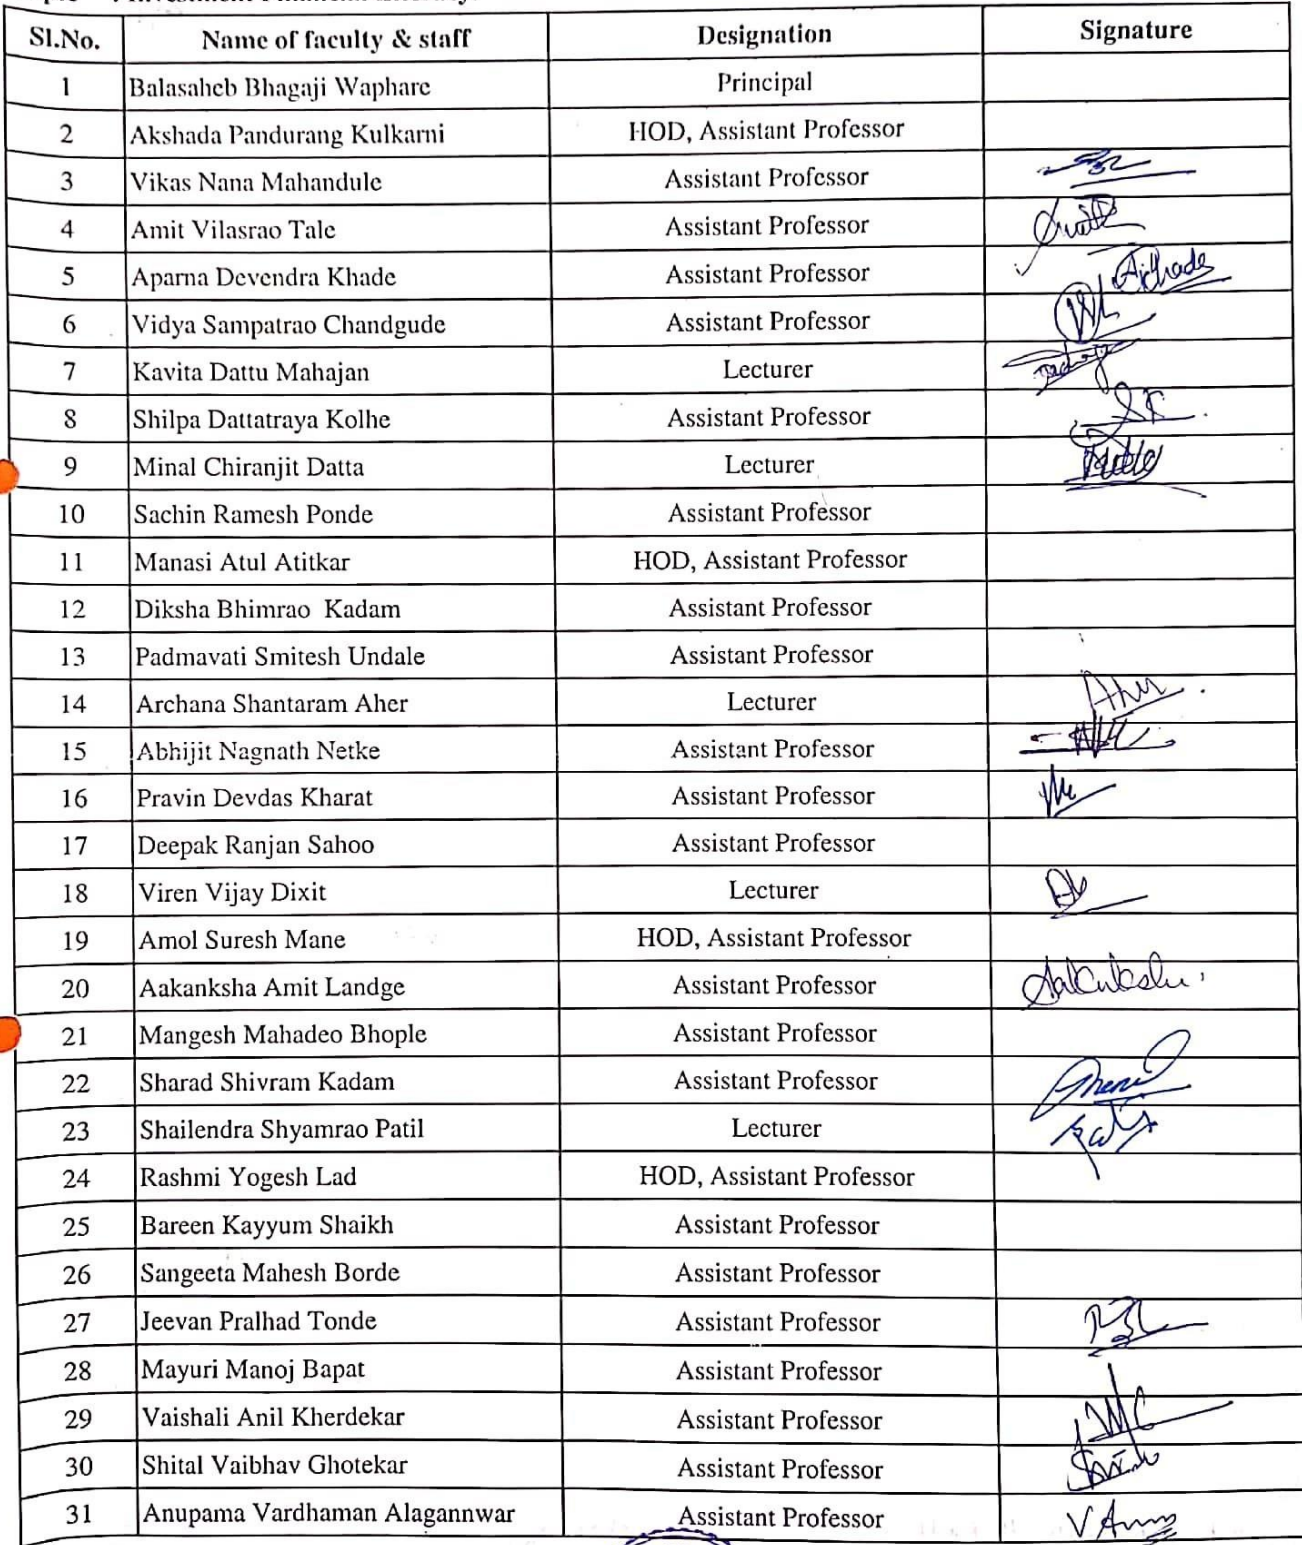 Sl.No. Name of faculty & staff Designation Signature
1 Balasaheb Bhagaji Waphare Principal
2 Akshada Pandurang Kulkarni HOD, Assistant Professor
3 Vikas Nana Mahandule Assistant Professor
4 Amit Vilasrao Tale Assistant Professor
5 Aparna Devendra Khade Assistant Professor
6 Vidya Sampatrao Chandgude Assistant Professor
7 Kavita Dattu Mahajan Lecturer
8 Shilpa Dattatraya Kolhe Assistant Professor
9 Minal Chiranjit Datta Lecturer
10 Sachin Ramesh Ponde Assistant Professor
11 Manasi Atul Atitkar HOD, Assistant Professor
12 Diksha Bhimrao Kadam Assistant Professor
13 Padmavati Smitesh Undale Assistant Professor
14 Archana Shantaram Aher Lecturer
15 Abhijit Nagnath Netke Assistant Professor
16 Pravin Devdas Kharat Assistant Professor
17 Deepak Ranjan Sahoo Assistant Professor
18 Viren Vijay Dixit Lecturer
19 Amol Suresh Mane HOD, Assistant Professor
20 Aakanksha Amit Landge Assistant Professor
21 Mangesh Mahadeo Bhople Assistant Professor
22 Sharad Shivram Kadam Assistant Professor
23 Shailendra Shyamrao Patil Lecturer
24 Rashmi Yogesh Lad HOD, Assistant Professor
25 Bareen Kayyum Shaikh Assistant Professor
26 Sangeeta Mahesh Borde Assistant Professor
27 Jeevan Pralhad Tonde Assistant Professor
28 Mayuri Manoj Bapat Assistant Professor
29 Vaishali Anil Kherdekar Assistant Professor
30 Shital Vaibhav Ghotekar Assistant Professor
31 Anupama Vardhaman Alagannwar Assistant Professor